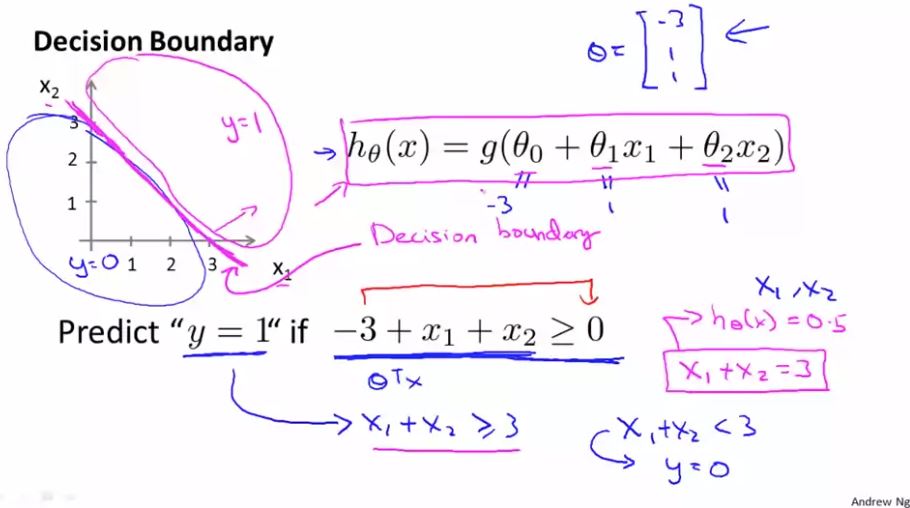 Decision Boundary
θ = [-3 1 1]
x₂
3
2
1
y=1
y=0
1 2 3
x₁
hθ(x) = g(θ₀ + θ₁x₁ + θ₂x₂)
-3 1 1
Decision boundary
Predict “y = 1“ if −3 + x₁ + x₂ ≥ 0
θᵀx
x₁ + x₂ ≥ 3
x₁, x₂
hθ(x) = 0.5
x₁ + x₂ = 3
x₁ + x₂ < 3
y = 0
Andrew Ng